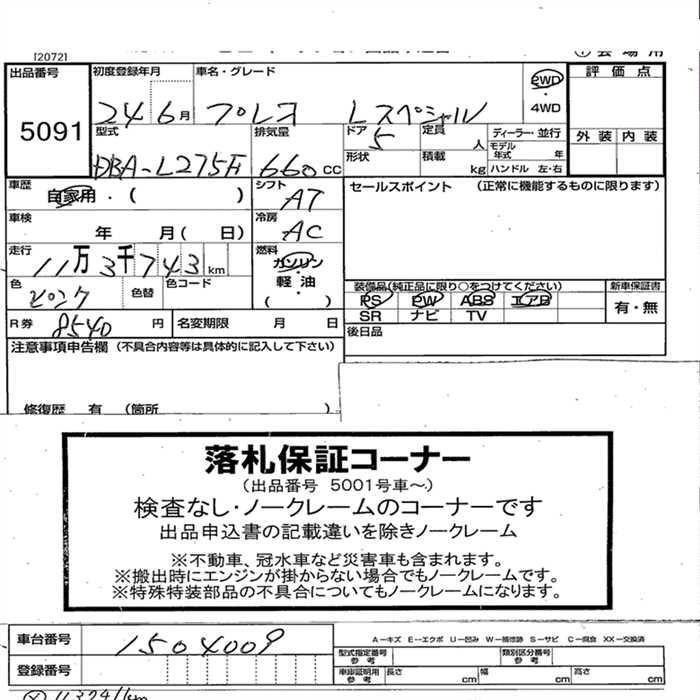 [2072]
出品番号 5091
初度登録年月 24 6月
車名・グレード プレオ Lスペシャル
2WD・4WD
評価点
外装 内装
型式 DBA-L275F
排気量 660CC
ドア 5
定員 人
ディーラー・並行
形状
積載 kg
モデル年式 年
ハンドル 左・右
車歴 自家用・( )
シフト AT
セールスポイント (正常に機能するものに限ります)
車検 年 月( 日)
冷房 AC
走行 11万3千743km
燃料 ガソリン・軽油・( )
色 ピンク
色替
色コード
装備品(純正品に限り○をつけてください)
新車保証書
PS PW ABS エアB
有・無
SR ナビ TV
R券 8540円
名変期限 月 日
後日品
注意事項申告欄 (不具合内容等は具体的に記入して下さい)
修復歴 有 (箇所 )
落札保証コーナー
(出品番号 5001号車~)
検査なし・ノークレームのコーナーです
出品申込書の記載違いを除きノークレーム
※不動車、冠水車など災害車も含まれます。
※搬出時にエンジンが掛からない場合でもノークレームです。
※特殊特装部品の不具合についてもノークレームになります。
車台番号 1504009
A-キズ E-エクボ U-凹み W-補修跡 S-サビ C-腐食 XX-交換済
型式指定番号 参考
類別区分番号 参考
登録番号
車庫証明用 参考
長さ cm 幅 cm 高さ cm